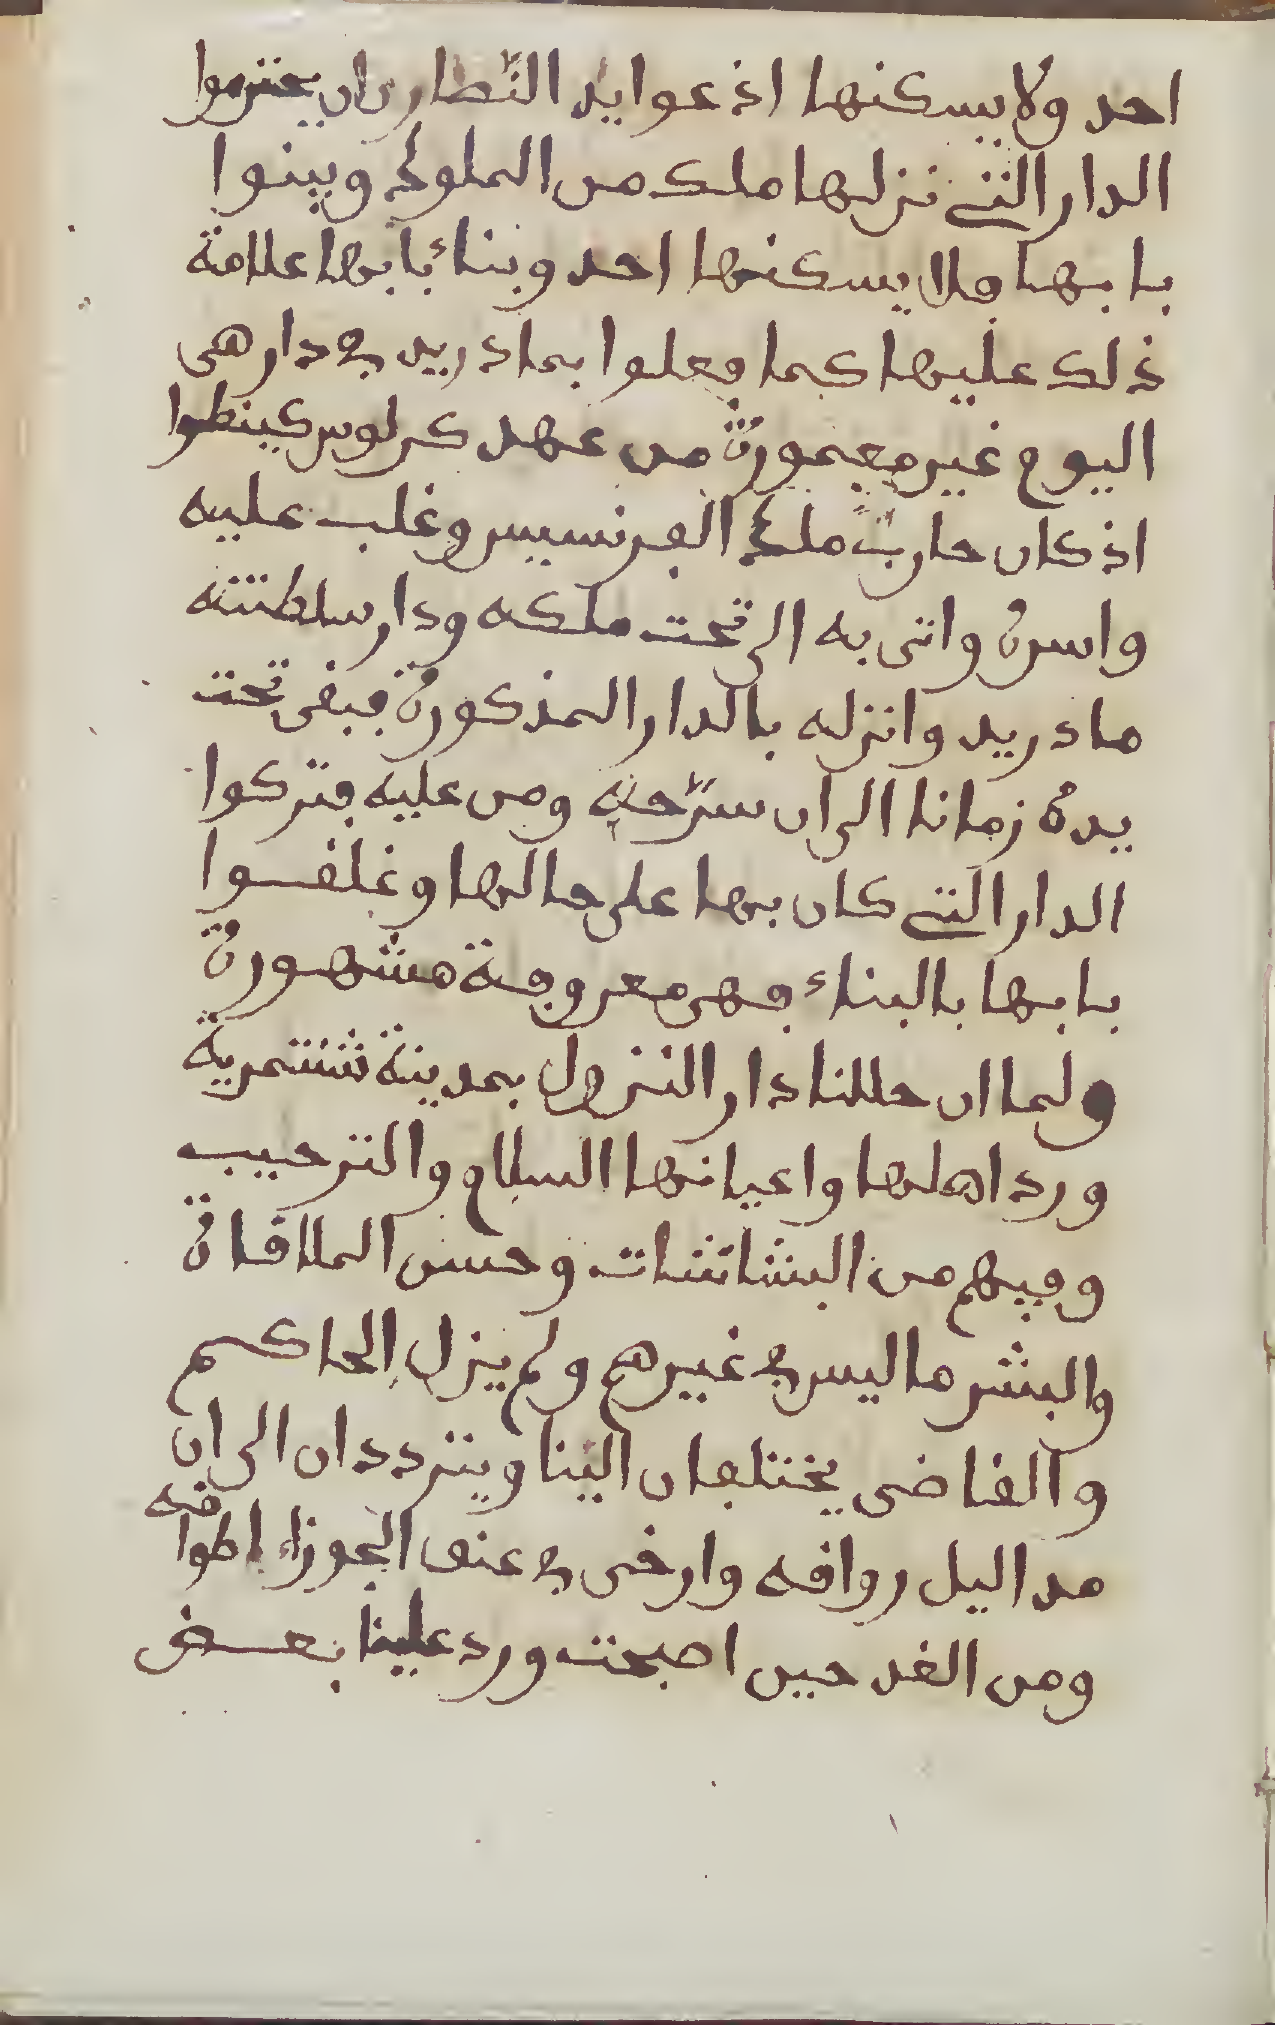 احد ولا يسكنها اذ عوايد النصارى ان يحترموا
الدار التي نزلها ملك من الملوك ويبنوا
بابها فلا يسكنها احد وبناء بابها علامة
ذلك عليها كما فعلوا بمادريد في دار هي
اليوم غير معمورة من عهد كرلوس كينطوا
اذ كان حارب ملك الفرنسيس وغلب عليه
واسره واتى به الى تحت ملكه ودار سلطنته
مادريد وانزله بالدار المذكورة فبقى تحت
يده زمانا الى ان سرّحه ومن عليه فتركوا
الدار التي كان بها على حالها وغلقوا
بابها بالبناء فهى معروفة مشهورة
ولما ان حللنا دار النزول بمدينة شنتمرية
ورد اهلها واعيانها السلام والترحيب
وفيهم من البشاشات وحسن الملاقاة
والبشر ما ليس في غيرهم ولم يزل الحاكم
والقاضى يختلفان الينا ويترددان الى ان
مد اليل رواقه وارخى في عنق الجوزاء اطواقه
ومن الغد حين اصبحت ورد علينا بعض